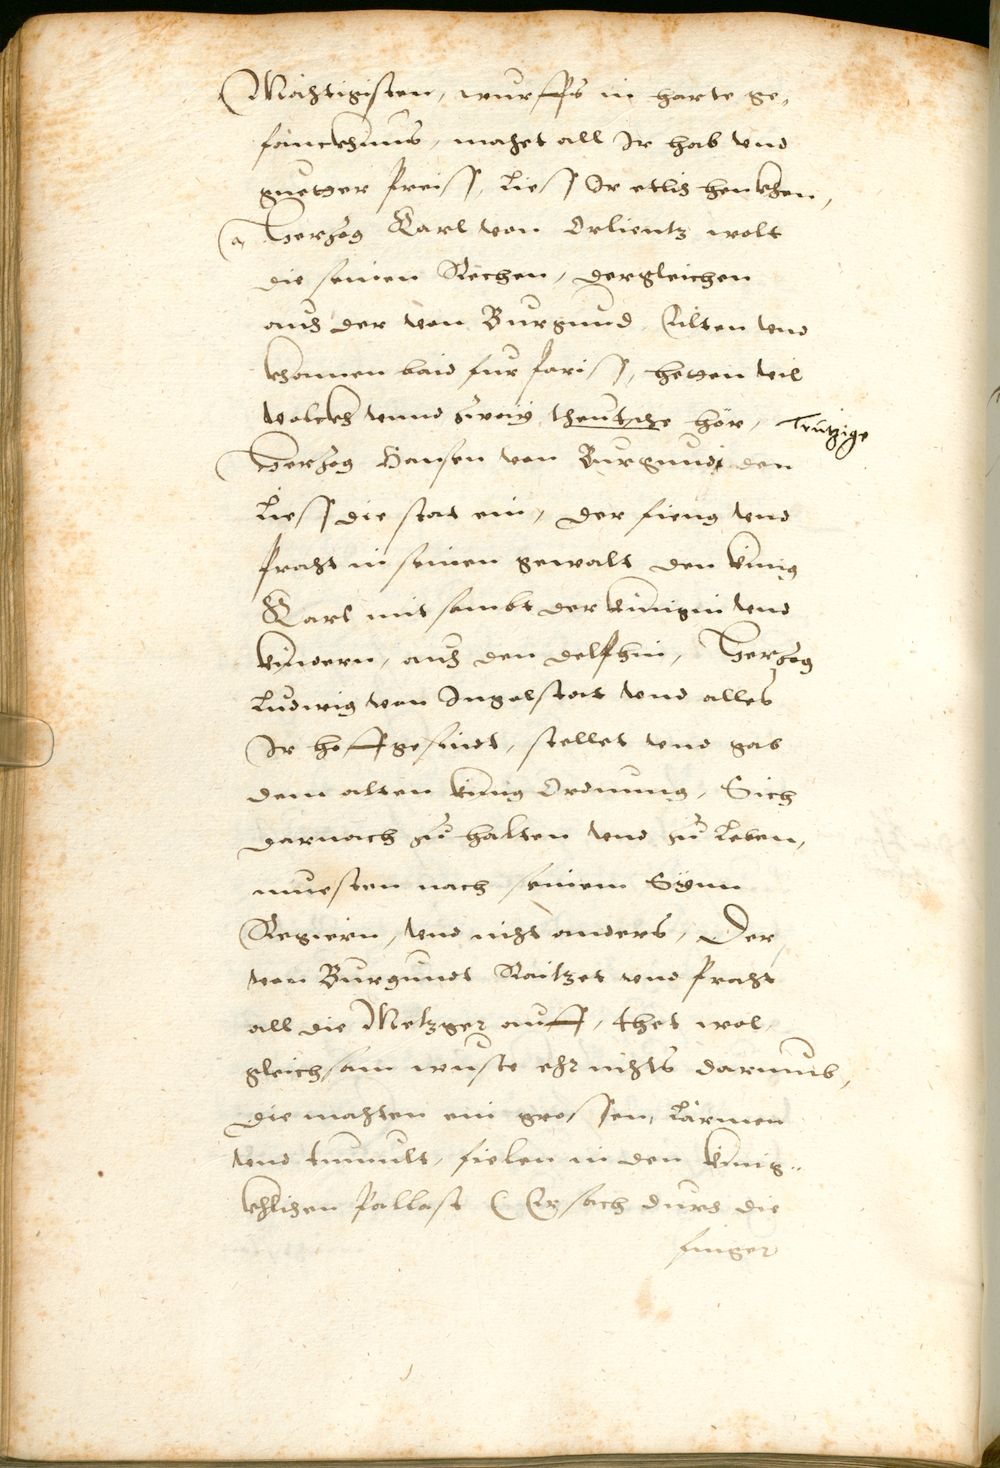 Mächtigisten, wurffs in harte ge,
fänckhnus, machet all Ir hab und
guetter Preiss, Liess Ir etlich henckhen,
Herzog Karl von Orlientz wolt
die seinen Rechen, dergleichen
auch der von Burgund, Eilten und
khamen baid fur Pariss, hetten vil
volckhs unnd zwaÿ theutsche hör, Trutzige
Herzog Hansen von Burgundt den
Liess die stat ein, der fieng und
pracht in seinen gewalt den künig
Karl mit sambt der künigin und
kündern, auch den delfhin, Herzog
Ludwig von Ingelstat und alles
Ir hoffgesindt, stellet und gab
dem alten künig Ordnung, Sich
darnach zu halten und zu Leben,
muesten nach seinem Synn
Regiern, und nicht anders, Der
von Burgundt Raitzet und pracht
all die Metzger auff, thet wol
gleichsam wuste ehr nichts darumb,
die machten ein grossen, Lärmen
und tumult, fielen in den künig,,
khlichen Pallast (Er sach durch die
finger